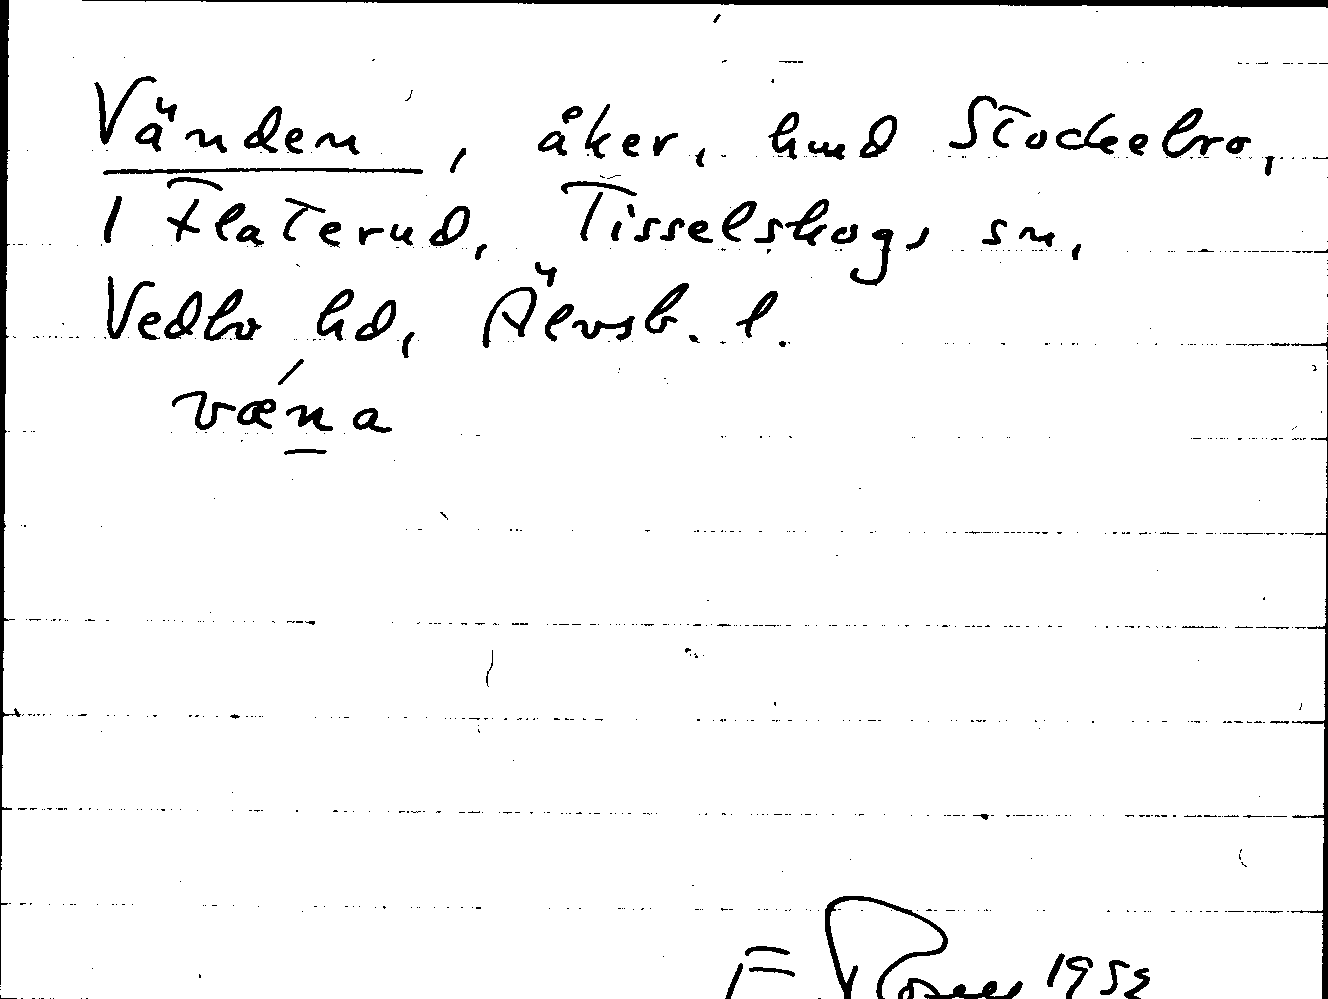 Vänden, åker, hmd Stockebro,
1 Flaterud, Tisselskogs sn,
Vedbo hd, Älvsb. l.
vǽna
F. Rosell 1952